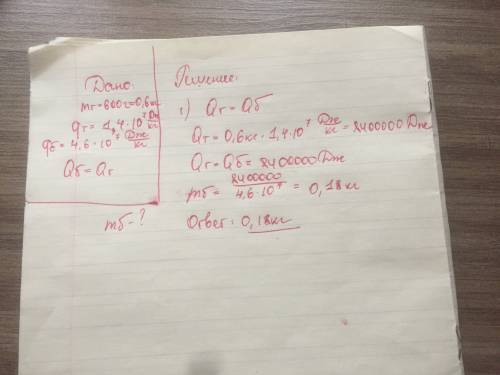 Дано:
mт=600г=0,6кг
qт=1,4·10⁷ Дж/кг
qб=4,6·10⁷ Дж/кг
Qб=Qт
mб-?
Решение:
1) Qт=Qб
Qт=0,6кг·1,4·10⁷ Дж/кг=8400000Дж
Qт=Qб=8400000Дж
mб=8400000/4,6·10⁷=0,18кг
Ответ: 0,18кг